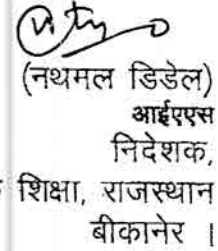 (नथमल डिडेल)
आईएएस
निदेशक,
शिक्षा, राजस्थान
बीकानेर ।